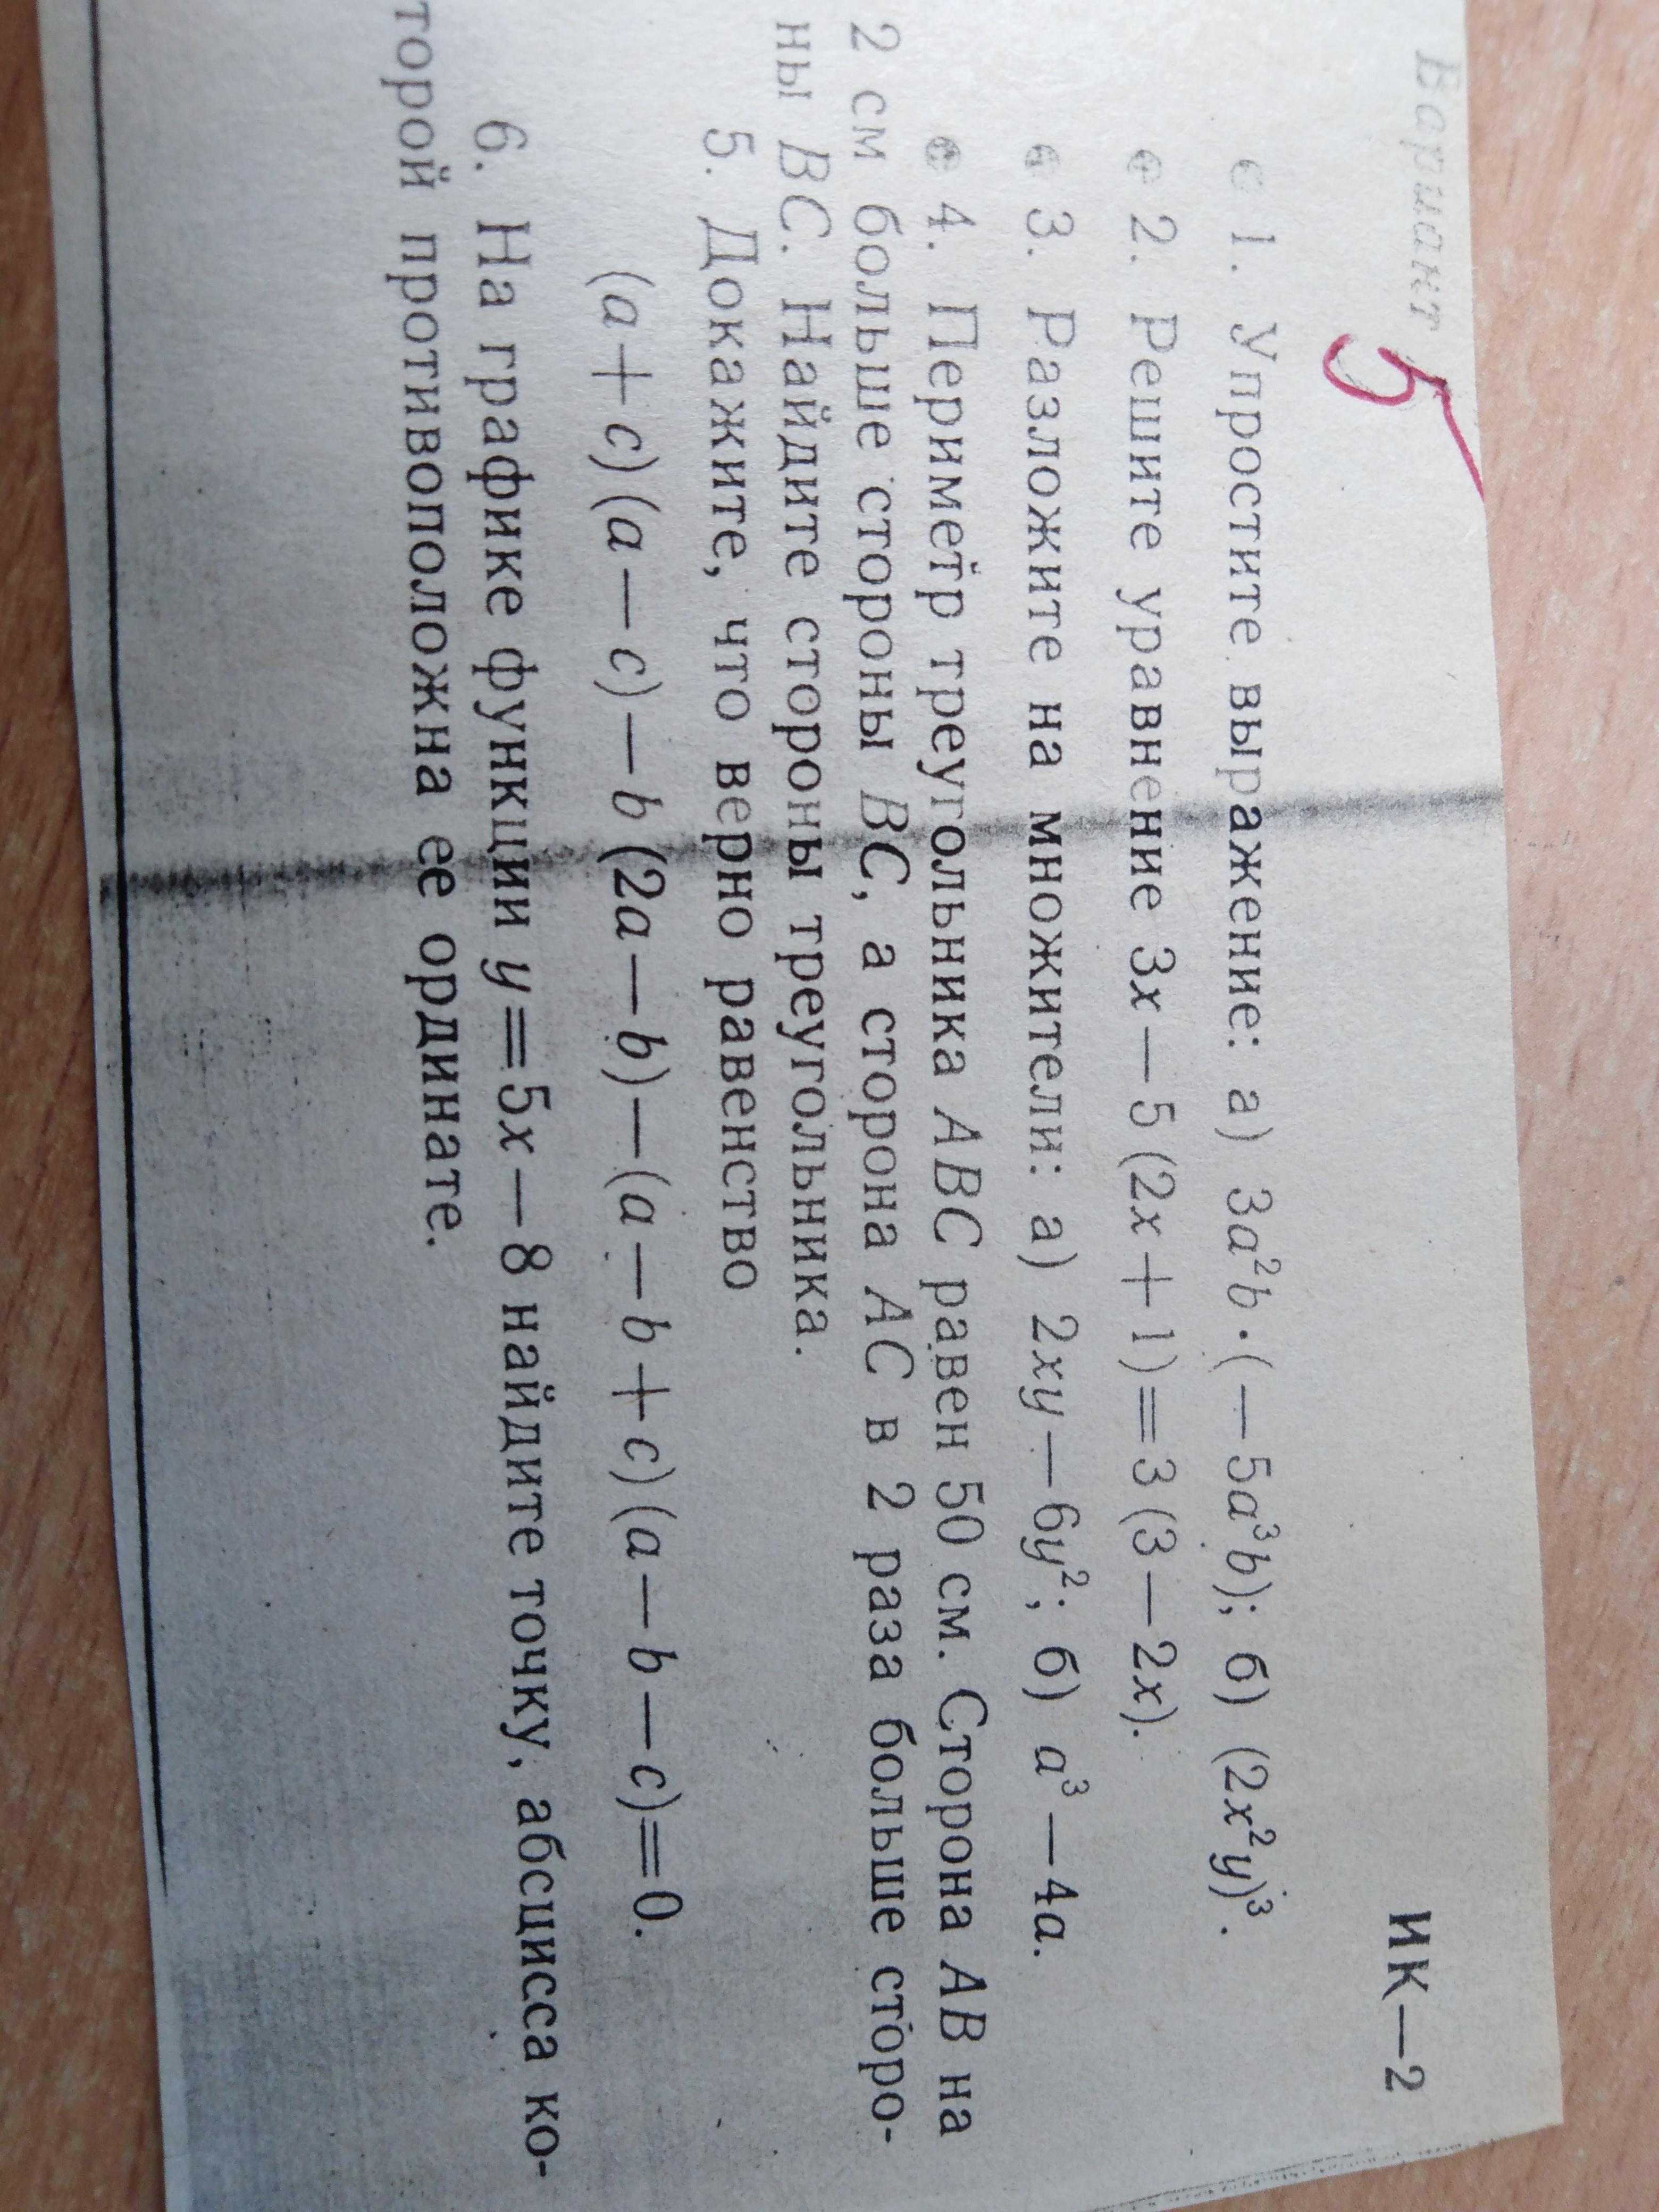 Вариант 5
ИК—2
1. Упростите выражение: а) 3a²b·(—5a³b); б) (2x²y)³.
2. Решите уравнение 3x—5(2x+1)=3(3—2x).
3. Разложите на множители: а) 2xy—6y²; б) a³—4a.
4. Периметр треугольника ABC равен 50 см. Сторона AB на
2 см больше стороны BC, а сторона AC в 2 раза больше сторо-
ны BC. Найдите стороны треугольника.
5. Докажите, что верно равенство
(a+c)(a—c)—b(2a—b)—(a—b+c)(a—b—c)=0.
6. На графике функции y=5x—8 найдите точку, абсцисса ко-
торой противоположна ее ординате.